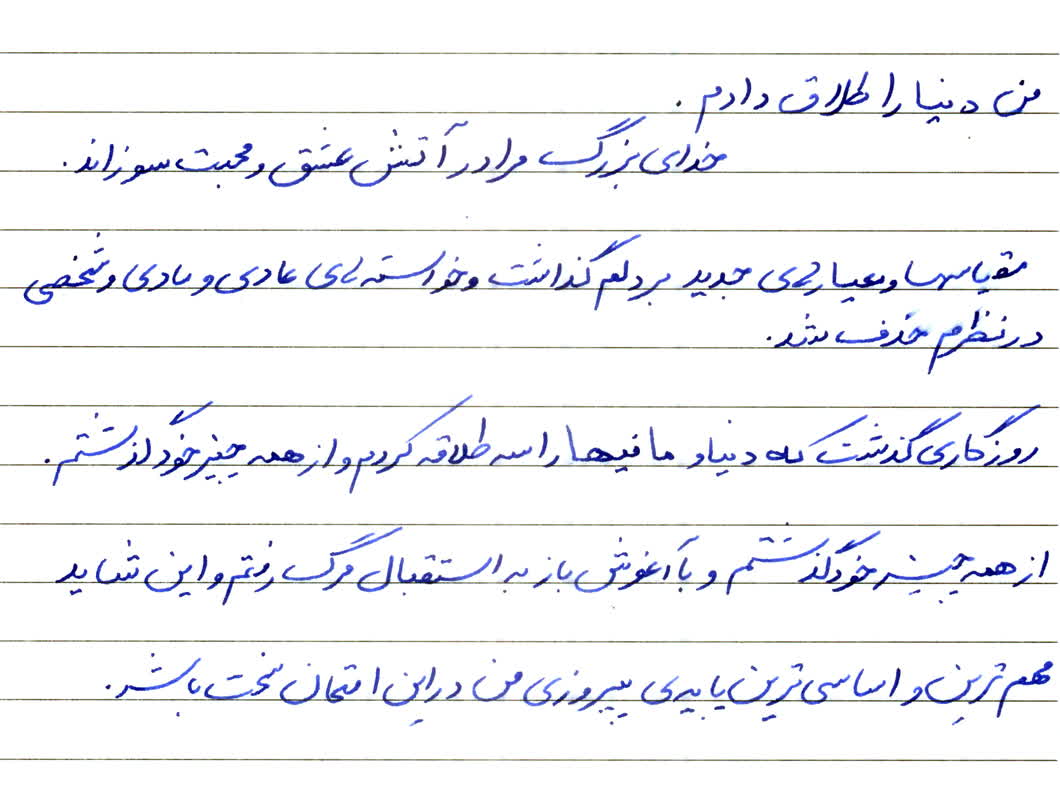 من دنیا را طلاق دادم.
خدای بزرگ مرا در آتش عشق و محبت سوزاند.
مقیاسها و معیارهای جدید بر دلم گذاشت و خواسته های عادی و مادی و شخصی
در نظرم حذف شد.
روزگاری گذشت که دنیا و مافیها را سه طلاقه کردم و از همه چیز خود گذشتم.
از همه چیز خود گذشتم و با آغوش باز به استقبال مرگ رفتم و این شاید
مهم ترین و اساسی ترین پایه ی پیروزی من در این امتحان سخت باشد.